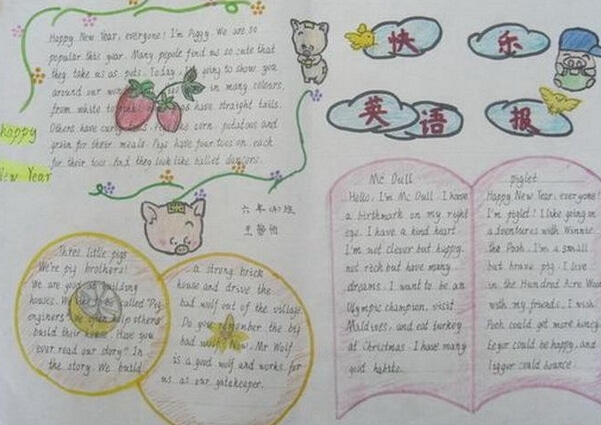 Happy New Year, everyone! I'm Piggy. We are so
popular this year. Many pepole find us so cute that
they take us as pets. Today, I'm going to show you
around our in many colours,
from white to have straight tails.
Others have corn, potatoes and
grain for their meals. Pigs have four toes on each
for their toes. And they look like ballet dancers.
happy
New Year
快乐
英语报
六年
Three little pigs
We're pig brothers!
We are good at building
houses. We called "Pig
enginers" We help others
build their house. Have you
ever read our story? In
the story. We build
a strong brick
house and drive the
bad wolf out of the village.
Do you remember the big
bad wolf? Now, Mr Wolf
is a good wolf and works for
us as our gatekeeper.
Mc Dull
Hello, I'm Mc Dull. I have
a birthmark on my right
eye. I have a kind heart.
I'm not clever but happy,
not rich but have many
dreams. I want to be an
Olympic champion, visit
Maldives, and eat turkey
at Christmas. I have many
good habits.
piglet
Happy New Year, everyone!
I'm piglet! I like going on
adventures with Winnie
the Pooh. I'm a small
but brave pig. I live
in the Hundred Acre Wood
with my friends. I wish
Pooh could get more honey,
Eeyor could be happy, and
Tigger could bounce